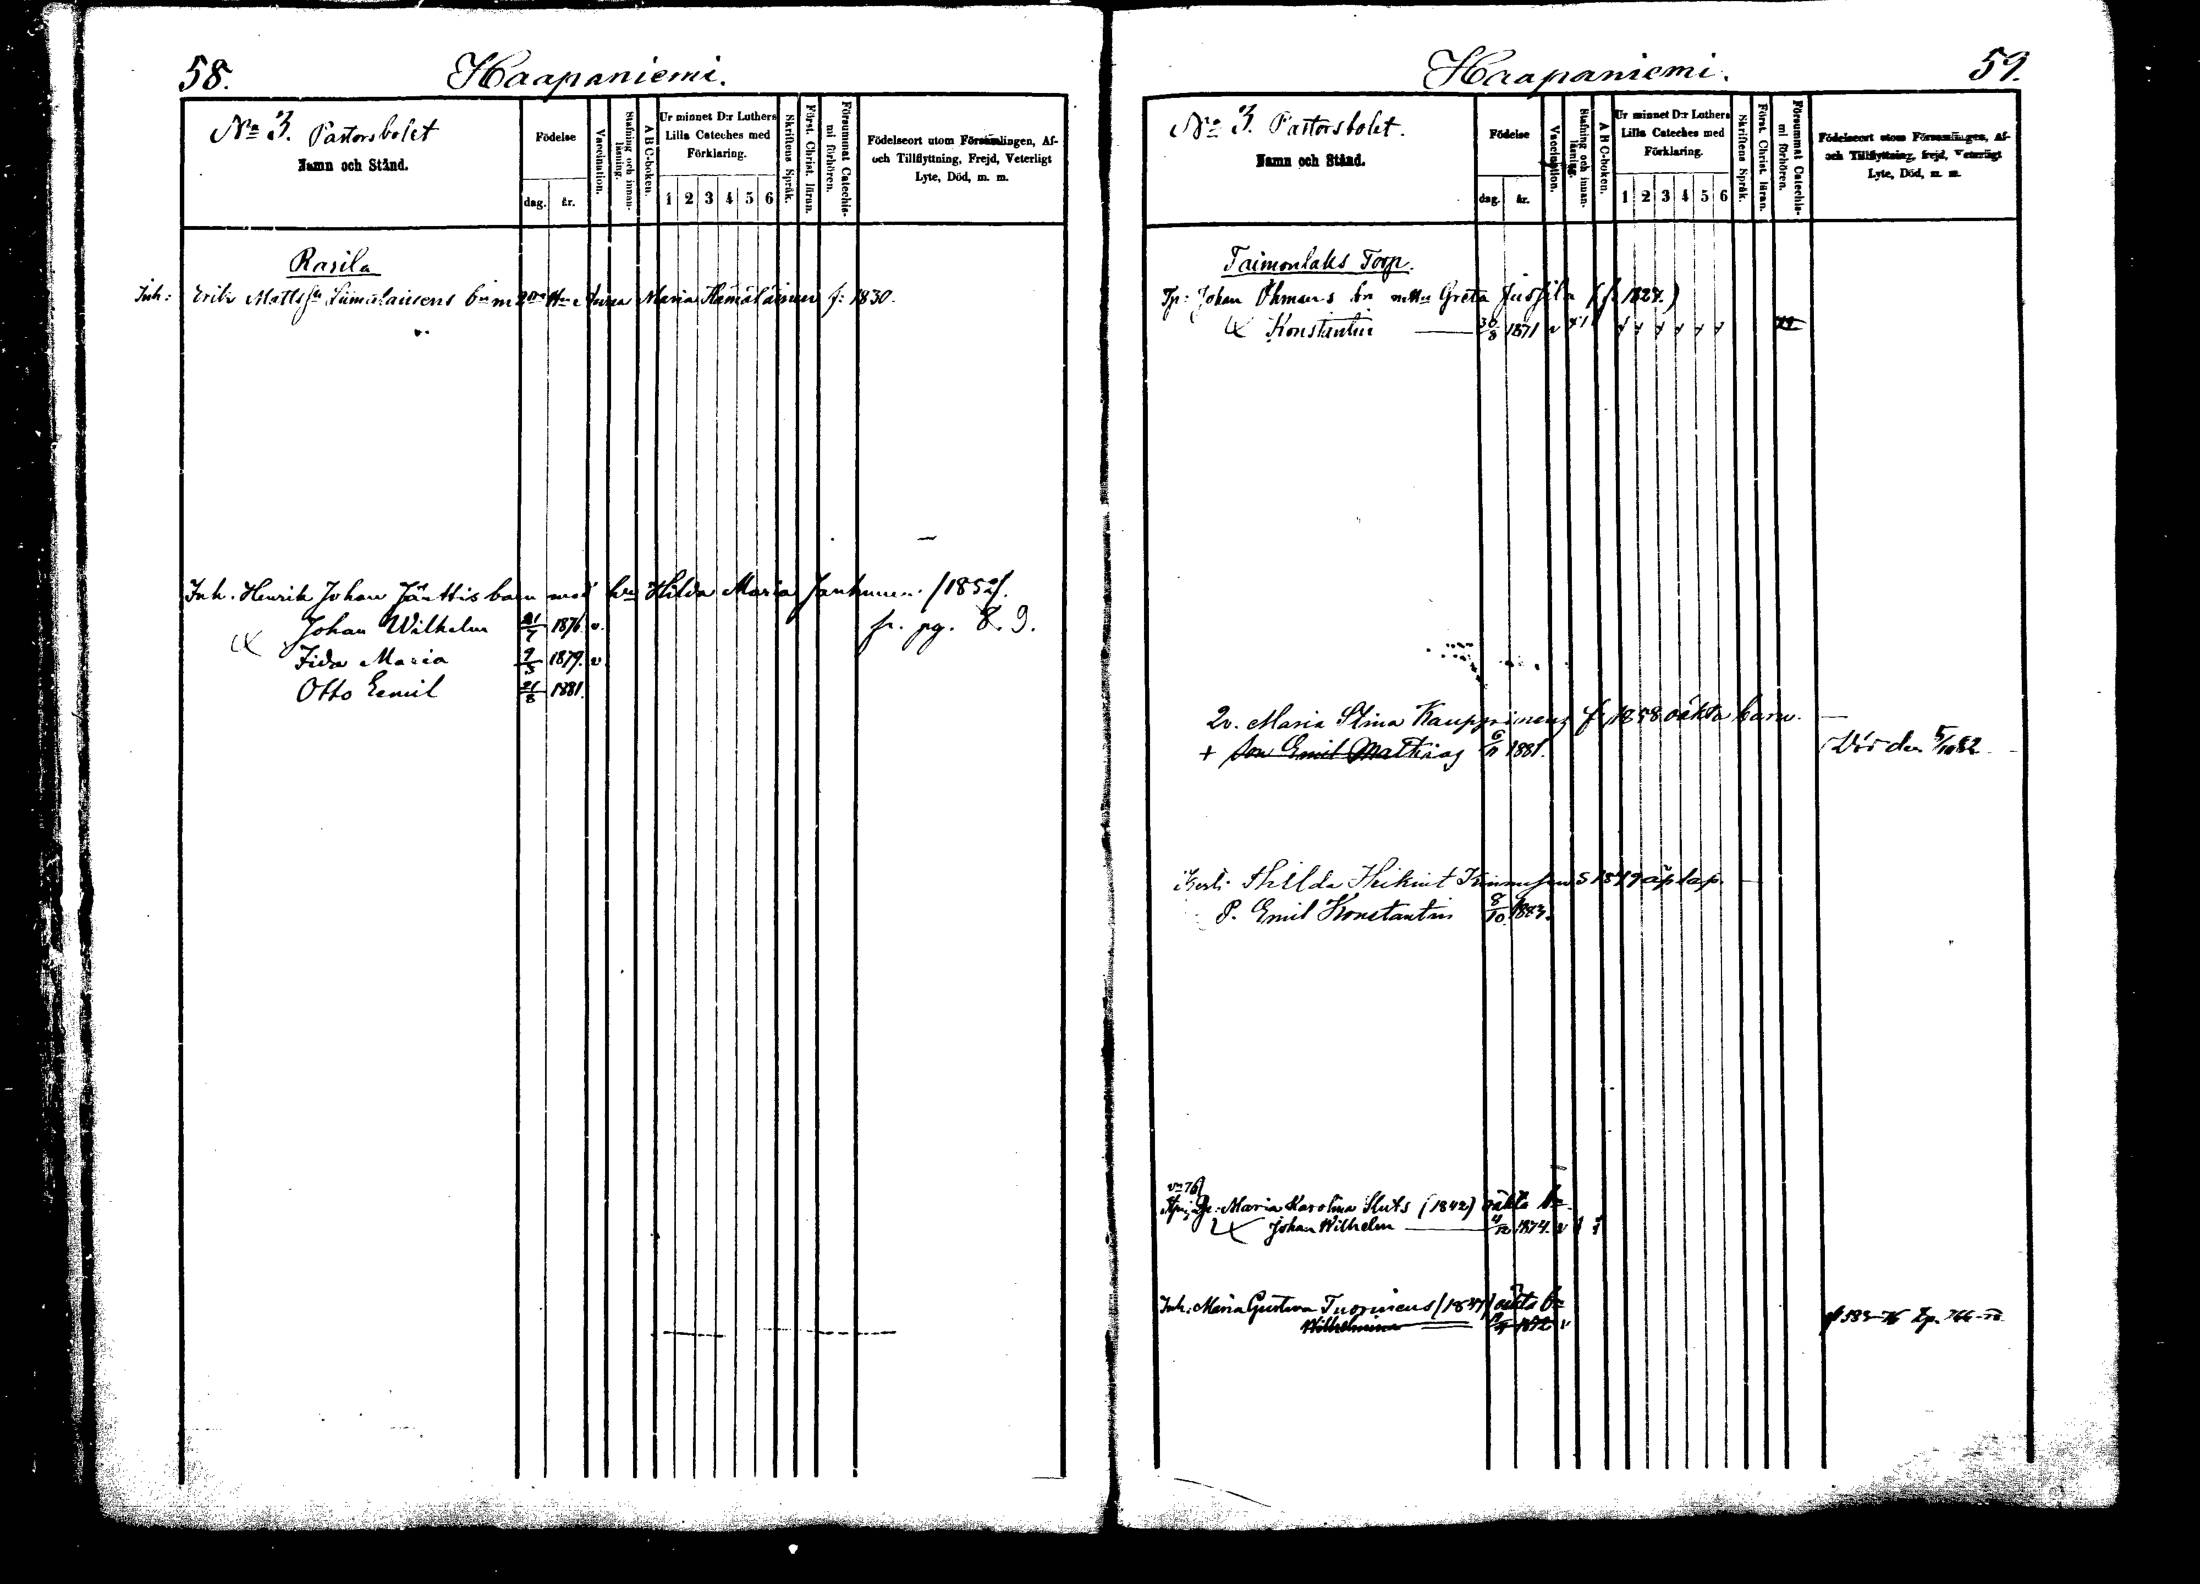 58.
Haapaniemi.
No 3. Pastorsbolet
Namn och Stånd.
Födelse
dag.
år.
Vaccination.
Stafning och innanläsning.
A B C-boken.
Ur minnet D:r Luthers
Lilla Cateches med
Förklaring.
1 2 3 4 5 6
Skriftens Språk.
Först. Christ. läran.
Försummat Catechismi förhören.
Födelseort utom Församlingen, Af-
och Tillflyttning, Frejd, Veterligt
Lyte, Död, m. m.
Rasila
Inh: Erik Matts Maria Hämäläinen f: 1830.
Inh. Henrik Johan Jänttis barn med Hilda Maria Janhunen (1852).
Johan Wilhelm 21/7 1876 v. fr. pg. 8. 9.
Iida Maria 9/5 1879. v
Otto Eemil 21/8 1881.
59.
Haapaniemi.
No 3. Pastorsbolet.
Namn och Stånd.
Födelse
dag.
år.
Vaccination.
Stafning och innanläsning.
A B C-boken.
Ur minnet D:r Luthers
Lilla Cateches med
Förklaring.
1 2 3 4 5 6
Skriftens Språk.
Först. Christ. läran.
Försummat Catechismi förhören.
Födelseort utom Församlingen, Af-
och Tillflyttning, frejd, Veterligt
Lyte, Död, m. m.
Torp.
Tp: Johan Öhmans bn Greta Jussila (f. 1827.)
Konstantin 30/8 1871 v
Maria Stina Kauppinens f. 1858 oäkta barn.
+ Son Emil Mathias 6/11 1881. Död den 5/10 82
Hilda s 1849 äp lap.
P. Emil Konstantin 8/10 1883.
Maria Karolina Sluts (1842) oäkta bn
Johan Wilhelm 1874. v
Inh: Maria Gustava oäkta bn
Wilhelmina 1872 v